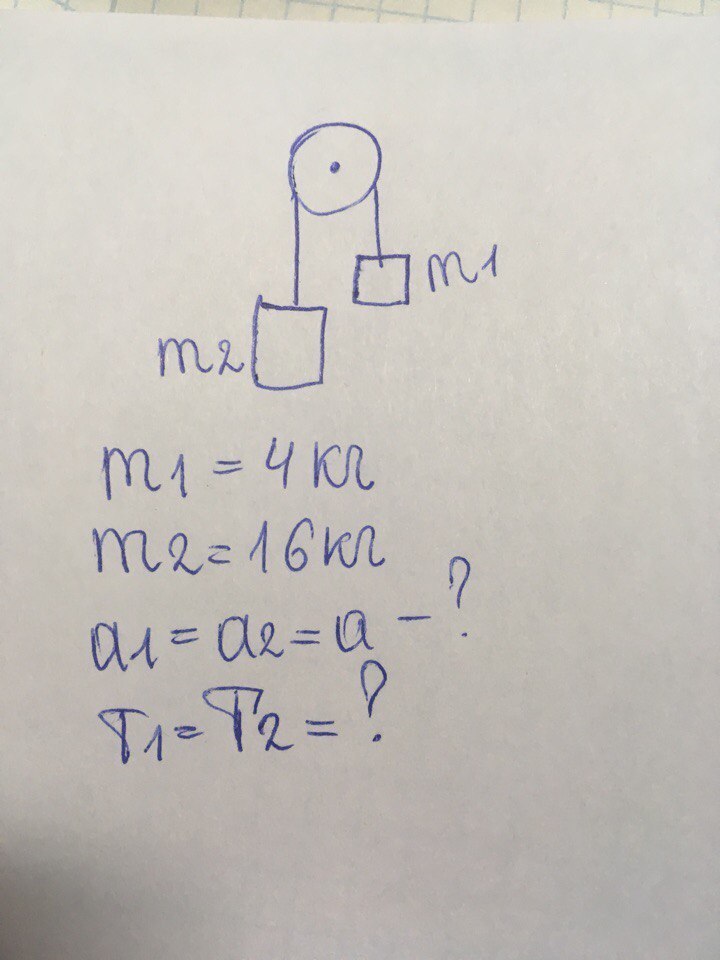 m1
m2
m1 = 4 кг
m2 = 16 кг
a1 = a2 = a - ?
T1 = T2 = ?